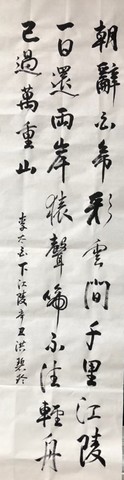 朝辭白帝彩雲間千里江陵
一日還兩岸猿聲啼不住輕舟
已過萬重山
李太白下江陵辛丑洪